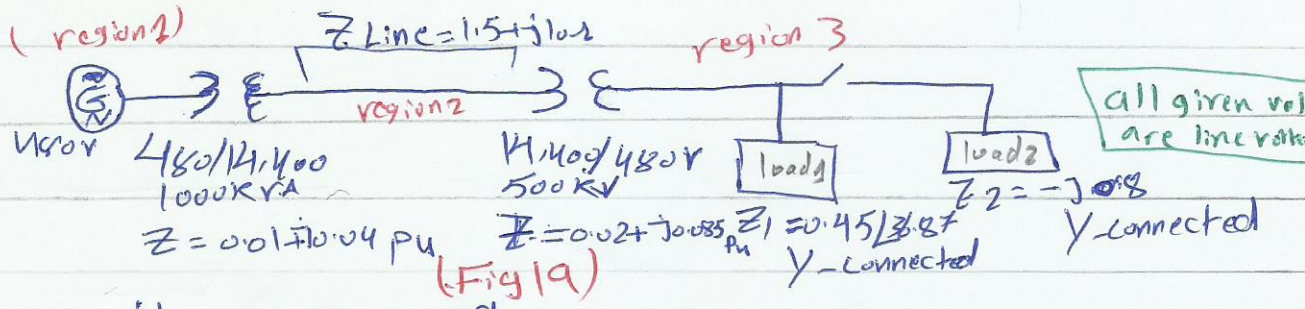 (region1)
Z Line=1.5+j10Ω
region 3
G
region2
all given vol
are line volta
480V
480/14,400
1000KVA
Z=0.01+j0.04 pu
14,400/480V
500 KV
Z=0.02+j0.085 Pu
load1
Z1=0.45∠36.87
Y-connected
load2
Z2=-j0.8
Y-connected
(Fig 1a)